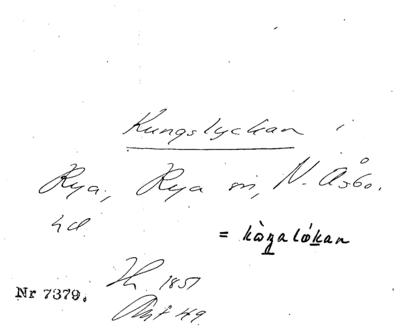 Kungslyckan i
Rya, Rya sn, N. Åsbo.
hd.
= kòṉalókan
Nr 7379. 1851
49.